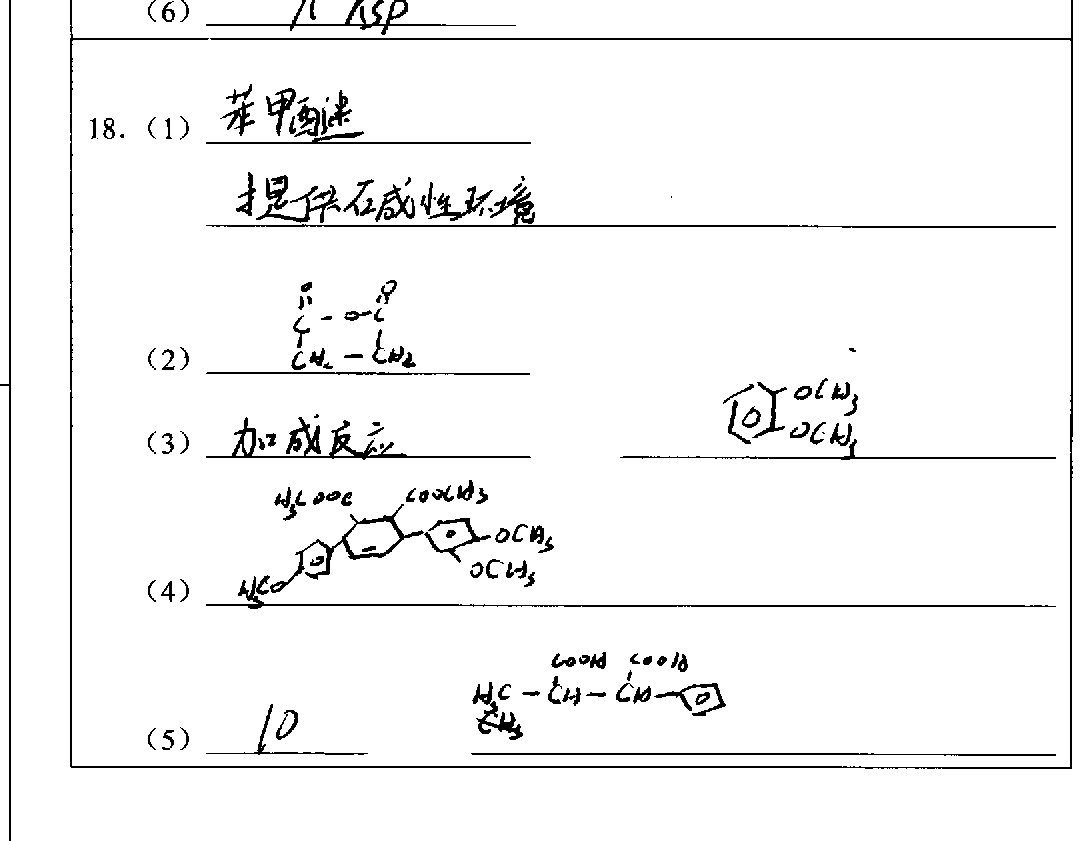 (6)
18.（1）苯甲醚
提供碱性环境
O O
C - O - C
（2）CH2 - CH2
OCH3
（3）加成反应 OCH3
H3COOC COOCH3
OCH3
OCH3
（4）H3CO
COOH COOH
H3C - CH - CH -
（5）10